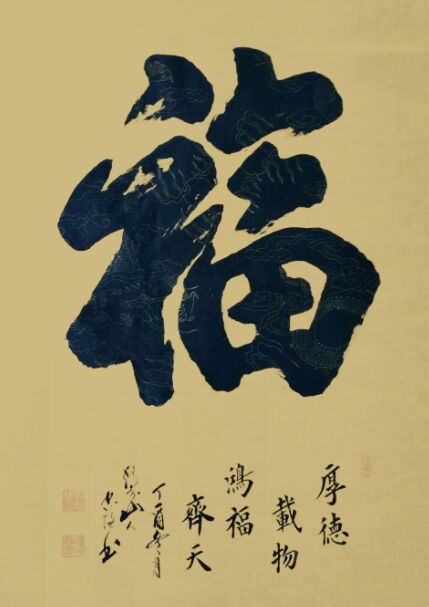 福
厚德
載物
鴻福
齊天
丁酉冬月
山人
書